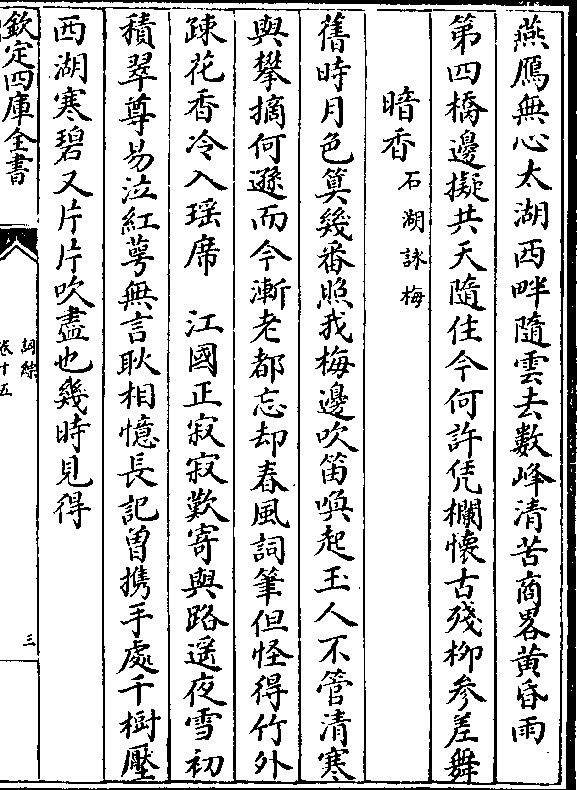 燕鴈無心太湖西畔隨雲去數峰清苦商畧黃昏雨
第四橋邊擬共天隨住今何許凭欄懷古殘柳參差舞
暗香石湖詠梅
舊時月色算幾番照我梅邊吹笛喚起玉人不管清寒
與攀摘何遜而今漸老都忘却春風詞筆但怪得竹外
踈花香冷入瑶席 江國正寂寂歎寄與路遥夜雪初
積翠尊易泣紅萼無言耿相憶長記曾携手處千樹壓
西湖寒碧又片片吹盡也幾時見得
欽定四庫全書
詞綜
卷十五
三